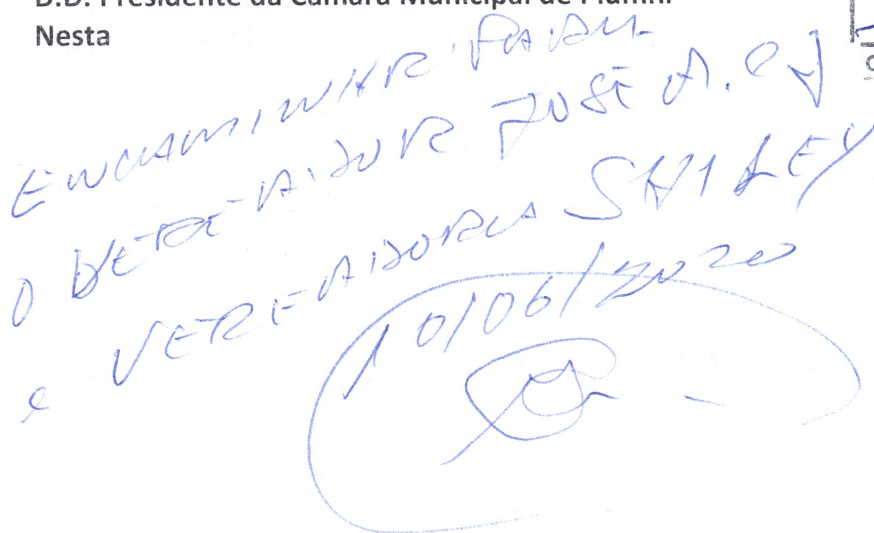 D.D. Presidente da Câmara Municipal de Piumhi
Nesta
ENCAMINHAR PARA
O VEREADOR JOSÉ A. C J
e VEREADORA SHIRLEY
10/06/2020